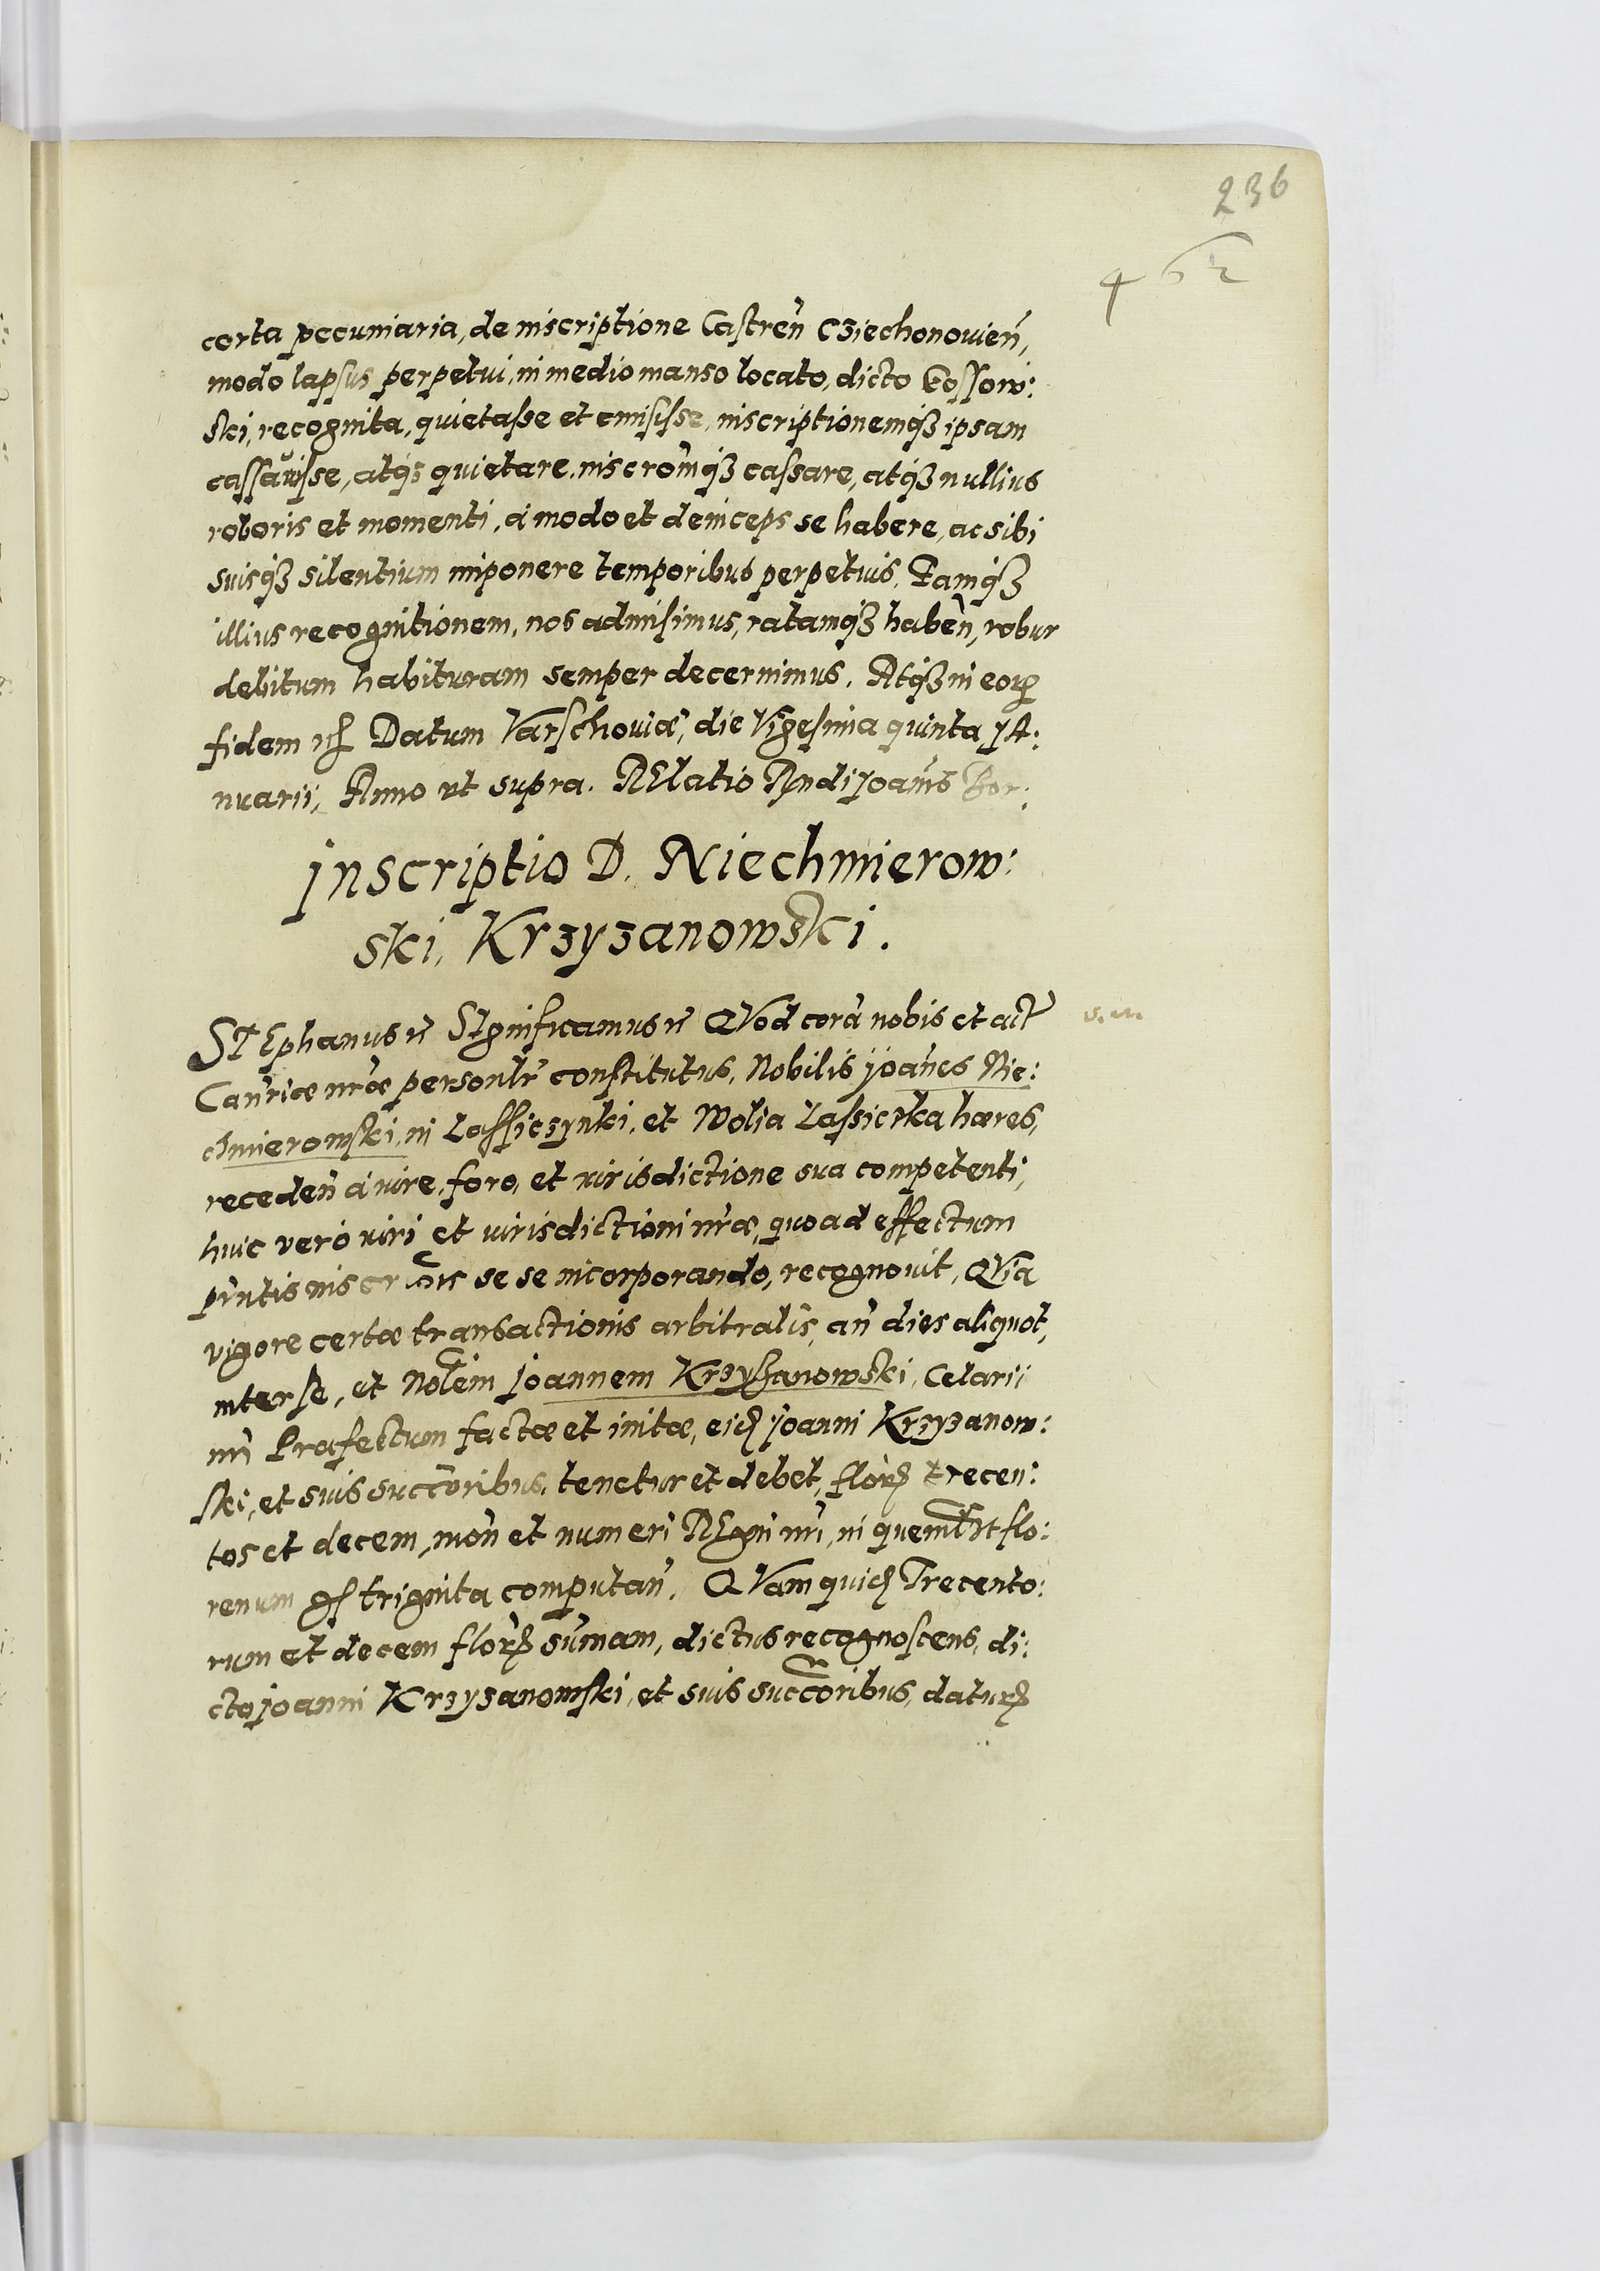 236
462
certa pecuniaria, de inscriptione Castreñ Cziechonovieñ,
modo lapsus perpetui, in medio manso locato, dicto Kossow:
ski, recognita, quietasse et emisisse, inscriptionemqȝ ipsam
cassavisse, atqȝ quietare, inscrõmqȝ cassare, atqȝ nullius
roboris et momenti, à modo et deinceps se habere, ac sibi
suisqȝ silentium imponere temporibus perpetuis. Eamqȝ
illius recognitionem, nos admisimus, ratamqȝ habeñ, robur
debitum habituram semper decernimus. Atqȝ in eoꝝ
fidem Datum Varschoviæ, die Vigesima quinta JA:
nuarii, Anno ut supra. RElatio Rñdi Joañis Bor:
Jnscriptio D. Niechmierow:
ski, Krzyzanowski.
STEphanus ꝛc̃ SIgnificamus ꝛc̃ QVod corã nobis et act̃
Cañriæ nr̃æ personlr̃ constitutus, Nobilis Joañes Nie:
chmierowski, in Lassiczynki, et Wolia Lassicrka hæres,
recedeñ à iure, foro, et iurisdictione sua competenti,
huic verò iuri et iurisdictioni nr̃æ, quo ad effectum
pr̃ntis inscrõis se se incorporando, recognovit, QVia
vigore certæ transactionis arbitralis, añ dies aliquot,
inter se, et Nolem̃ Joannem Krzyzanowski, Celarii
nr̃i Præfectum factæ et initæ, eidꝫ Joanni Krzyzanow:
ski, et suis succõribus, tenetur et debet, florꝫ trecen:
tos et decem, moñ et numeri REgni nr̃i, in quemlt̃ flo:
renum gꝭ triginta computañ. QVam quidꝫ Trecento:
rum et decem florꝫ sum̃am, dictus recognoscens, di:
cto Joanni Krzyzanowski, et suis succõribus, daturꝫ